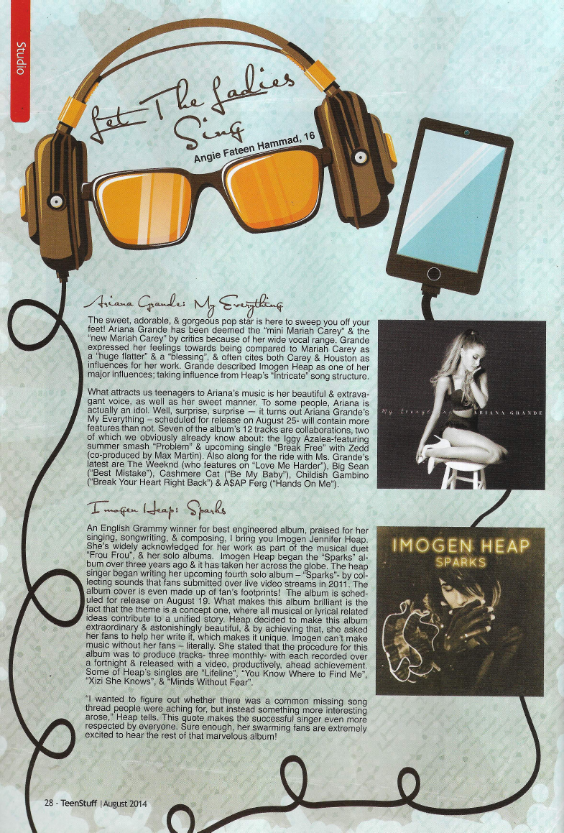 Studio
Let The Ladies
Sing
Angie Fateen Hammad, 16
Ariana Grande: My Everything
The sweet, adorable, & gorgeous pop star is here to sweep you off your
feet! Ariana Grande has been deemed the "mini Mariah Carey" & the
"new Mariah Carey" by critics because of her wide vocal range. Grande
expressed her feelings towards being compared to Mariah Carey as
a "huge flatter" & a "blessing", & often cites both Carey & Houston as
influences for her work. Grande described Imogen Heap as one of her
major influences; taking influence from Heap's "intricate" song structure.
What attracts us teenagers to Ariana's music is her beautiful & extrava-
gant voice, as well as her sweet manner. To some people, Ariana is
actually an idol. Well, surprise, surprise — it turns out Ariana Grande's
My Everything – scheduled for release on August 25- will contain more
features than not. Seven of the album's 12 tracks are collaborations, two
of which we obviously already know about: the Iggy Azalea-featuring
summer smash "Problem" & upcoming single "Break Free" with Zedd
(co-produced by Max Martin). Also along for the ride with Ms. Grande's
latest are The Weeknd (who features on "Love Me Harder"), Big Sean
("Best Mistake"), Cashmere Cat ("Be My Baby"), Childish Gambino
("Break Your Heart Right Back") & A$AP Ferg ("Hands On Me").
My Everything ARIANA GRANDE
Imogen Heap: Sparks
An English Grammy winner for best engineered album, praised for her
singing, songwriting, & composing, I bring you Imogen Jennifer Heap.
She's widely acknowledged for her work as part of the musical duet
"Frou Frou", & her solo albums. Imogen Heap began the "Sparks" al-
bum over three years ago & it has taken her across the globe. The heap
singer began writing her upcoming fourth solo album – "Sparks"- by col-
lecting sounds that fans submitted over live video streams in 2011. The
album cover is even made up of fan's footprints! The album is sched-
uled for release on August 19. What makes this album brilliant is the
fact that the theme is a concept one, where all musical or lyrical related
ideas contribute to a unified story. Heap decided to make this album
extraordinary & astonishingly beautiful, & by achieving that, she asked
her fans to help her write it, which makes it unique. Imogen can't make
music without her fans – literally. She stated that the procedure for this
album was to produce tracks- three monthly- with each recorded over
a fortnight & released with a video, productively, ahead achievement.
Some of Heap's singles are "Lifeline", "You Know Where to Find Me",
"Xizi She Knows", & "Minds Without Fear".
"I wanted to figure out whether there was a common missing song
thread people were aching for, but instead something more interesting
arose," Heap tells. This quote makes the successful singer even more
respected by everyone. Sure enough, her swarming fans are extremely
excited to hear the rest of that marvelous album!
IMOGEN HEAP
SPARKS
28 - TeenStuff | August 2014